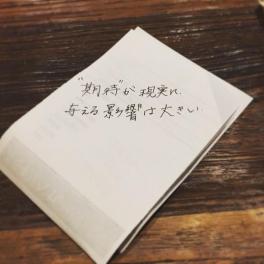 "期待"が現実に、
与える影響は大きい